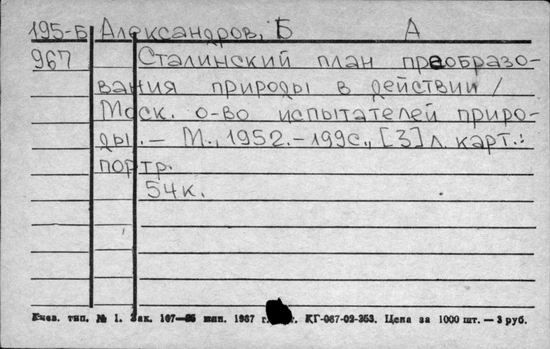 195-Б Александров, Б А
967 Сталинский план преобразо-
вания природы в действии /
Моск. о-во испытателей приро-
ды. – М., 1952. – 199с., [3] л. карт.:
портр.
54к.
тип. № 1. Зак. 107— 1967 КГ-067-02-353. Цена за 1000 шт. — 3 руб.